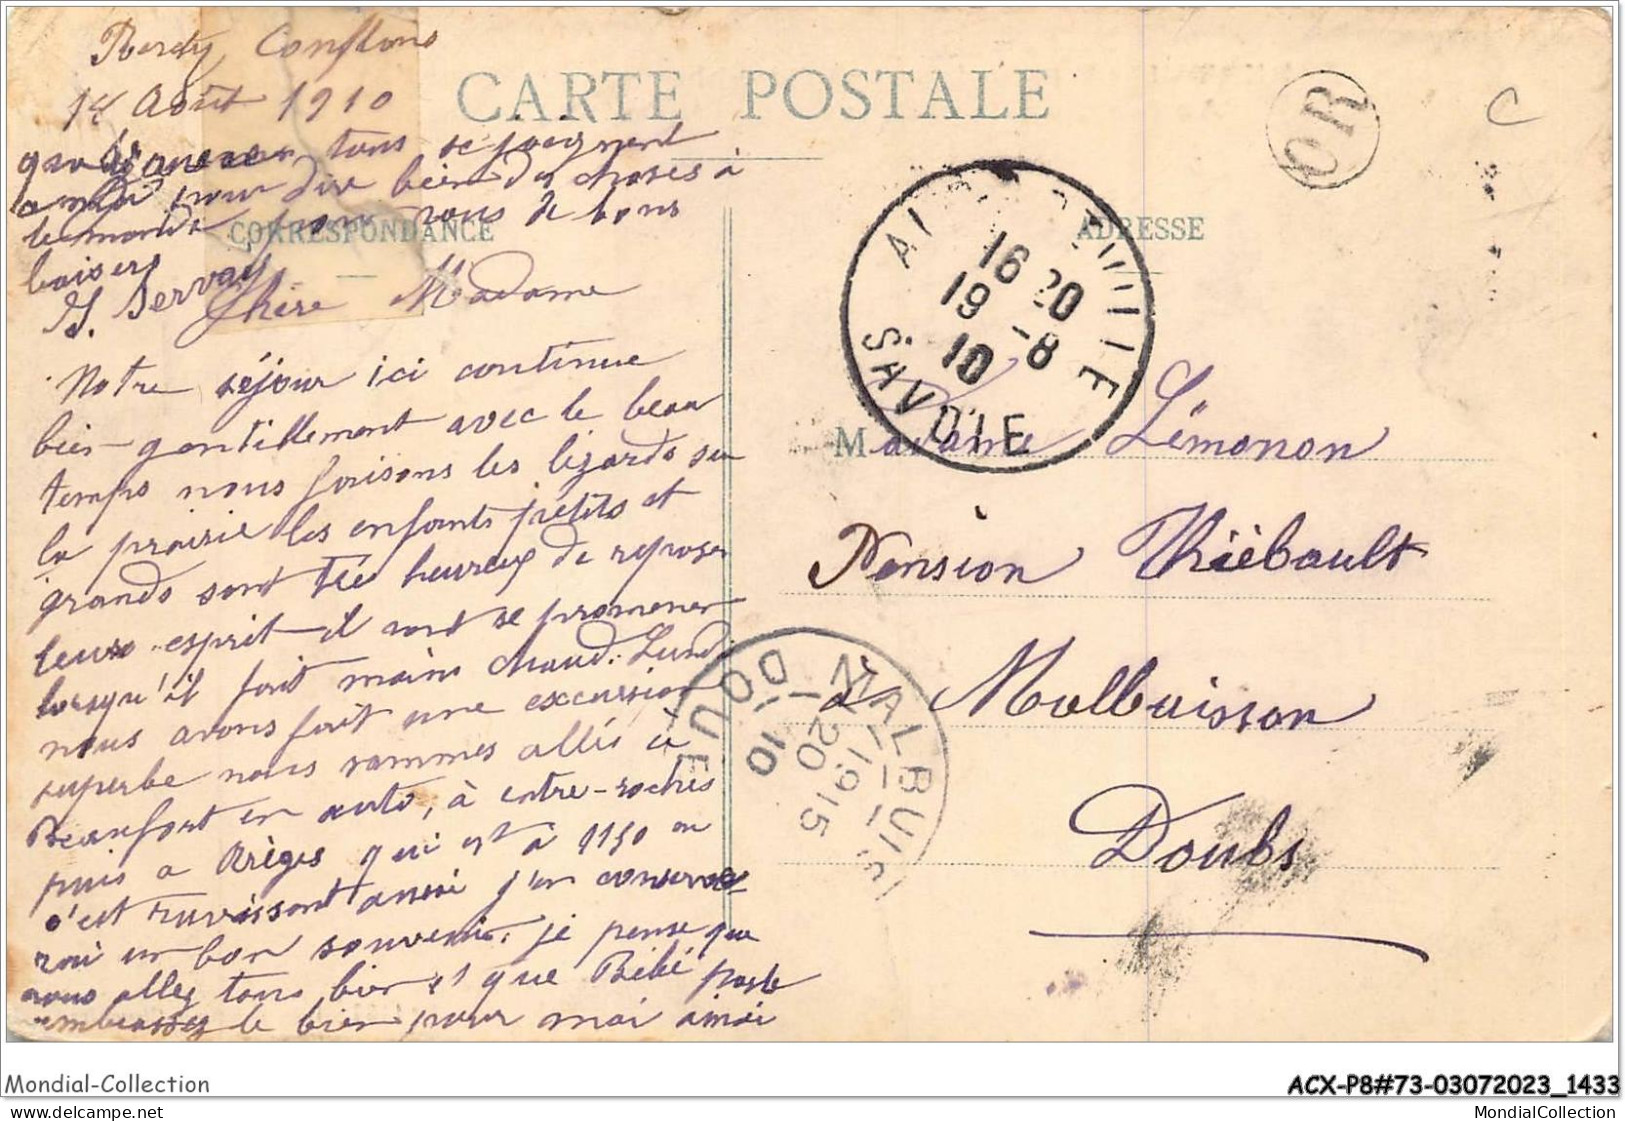 Conflans
14 Août 1910
CARTE POSTALE
OR
C
tous se joignent
à moi pour dire bien des choses à
le monde pour vous de bons
baisers
G. Servay
CORRESPONDANCE
ADRESSE
Chère Madame
Notre séjour ici continue
bien gentillement avec le beau
temps nous faisons les lézards sur
la prairie les enfants petits et
grands sont très heureux de reposer
leurs esprit il vont se promener
lorsqu'il fait moins chaud. Lundi
nous avons fait une excursion
superbe nous sommes allés à
Beaufort en auto, à entre-roches
puis à Arèges qui est à 1150 m
c'est ravissant aussi j'en conserve
rai un bon souvenir. je pense que
vous allez tous bien et que Bébé
embrassez le bien pour moi ainsi
16 20
19 -8
10
SAVOIE
Madame Lémonon
Pension Thiébault
à Malbuisson
Doubs
MALBUIS
19 15
20
10
DOUB
Mondial-Collection
ACX-P8#73-03072023_1433
© delcampe.net
MondialCollection